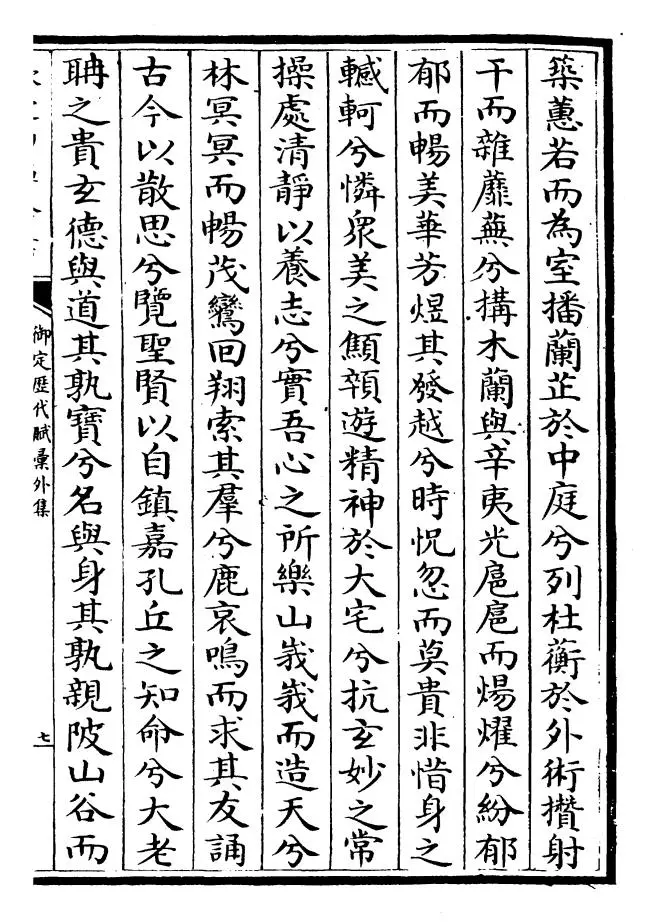 築蕙若而為室播蘭芷於中庭兮列杜蘅於外術攢射
干而雜蘼蕪兮搆木蘭與辛夷光扈扈而煬燿兮紛郁
郁而暢美華芳煜其發越兮時怳忽而莫貴非惜身之
轗軻兮憐衆美之顦顇遊精神於大宅兮抗玄妙之常
操處清靜以養志兮實吾心之所樂山峩峩而造天兮
林冥冥而暢茂鸞回翔索其羣兮鹿哀鳴而求其友誦
古今以散思兮覽聖賢以自鎮嘉孔丘之知命兮大老
聃之貴玄德與道其孰寶兮名與身其孰親陂山谷而
御定歷代賦彙外集
七